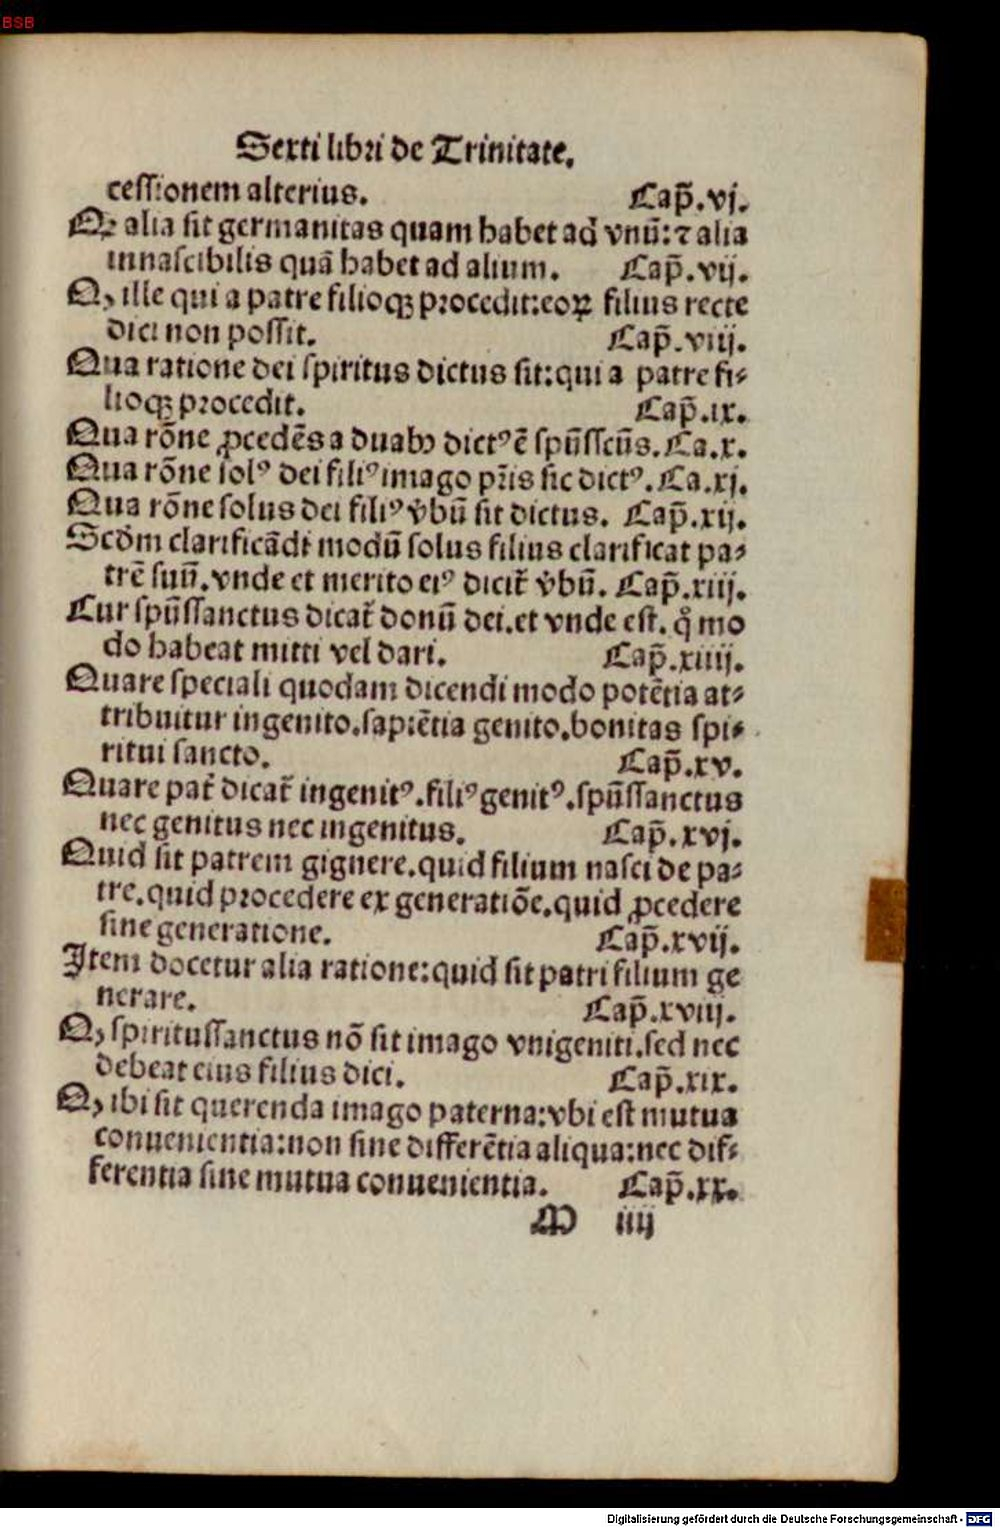 BSB
Sexti libri de Trinitate.
cessionem alterius. Cap̃.vj.
Qꝛ alia sit germanitas quam habet ad vnū:⁊ alia
innascibilis quā habet ad alium. Cap̃.vij.
Q, ille qui a patre filioqꝫ procedit:eoꝝ filius recte
dici non possit. Cap̃.viij.
Qua ratione dei spiritus dictus sit:qui a patre fi⸗
lioqꝫ procedit. Cap̃.ix.
Qua rōne ꝓcedēs a duabꝰ dictꝰ ē spūsscūs.Ca.x.
Qua rōne solꝰ dei filiꝰ imago pr̄is sic dictꝰ.Ca.xj.
Qua rōne solus dei filiꝰ v̓bū sit dictus. Cap̃.xij.
Scōm clarificādi modū solus filius clarificat pa⸗
trē suū.vnde et merito eiꝰ dicit̄ v̓bū. Cap̃.xiij.
Cur spūssanctus dicat̄ donū dei.et vnde est. q̊ mo
do habeat mitti vel dari. Cap̃.xiiij.
Quare speciali quodam dicendi modo potētia at⸗
tribuitur ingenito.sapiētia genito.bonitas spi⸗
ritui sancto. Cap̃.xv.
Quare pat̄ dicat̄ ingenitꝰ.filiꝰ genitꝰ.spūssanctus
nec genitus nec ingenitus. Cap̃.xvj.
Quid sit patrem gignere.quid filium nasci de pa⸗
tre.quid procedere ex generatiōe.quid ꝓcedere
sine generatione. Cap̃.xvij.
Item docetur alia ratione:quid sit patri filium ge
nerare. Cap̃.xviij.
Q, spiritussanctus nō sit imago vnigeniti.sed nec
debeat eius filius dici. Cap̃.xix.
Q, ibi sit querenda imago paterna:vbi est mutua
conuenientia:non sine differētia aliqua:nec dif⸗
ferentia sine mutua conuenientia. Cap̃.xx.
M iiij
Digitalisierung gefördert durch die Deutsche Forschungsgemeinschaft - DFG